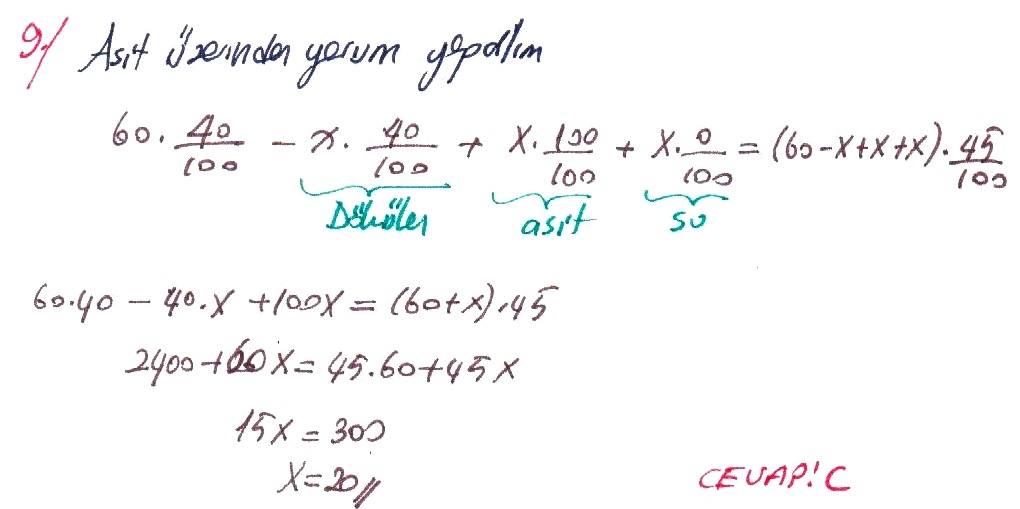 9-) Asit üzerinden yorum yapalım
60 · 40/100 - x · 40/100 + x · 100/100 + x · 0/100 = (60-x+x+x) · 45/100
Dökülen asit su
60·40 - 40·x + 100x = (60+x)·45
2400+60x = 45.60+45x
15x = 300
x=20//
CEVAP! C